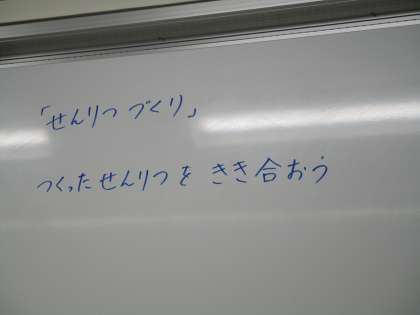 「せんりつ づくり」
つくったせんりつを きき合おう